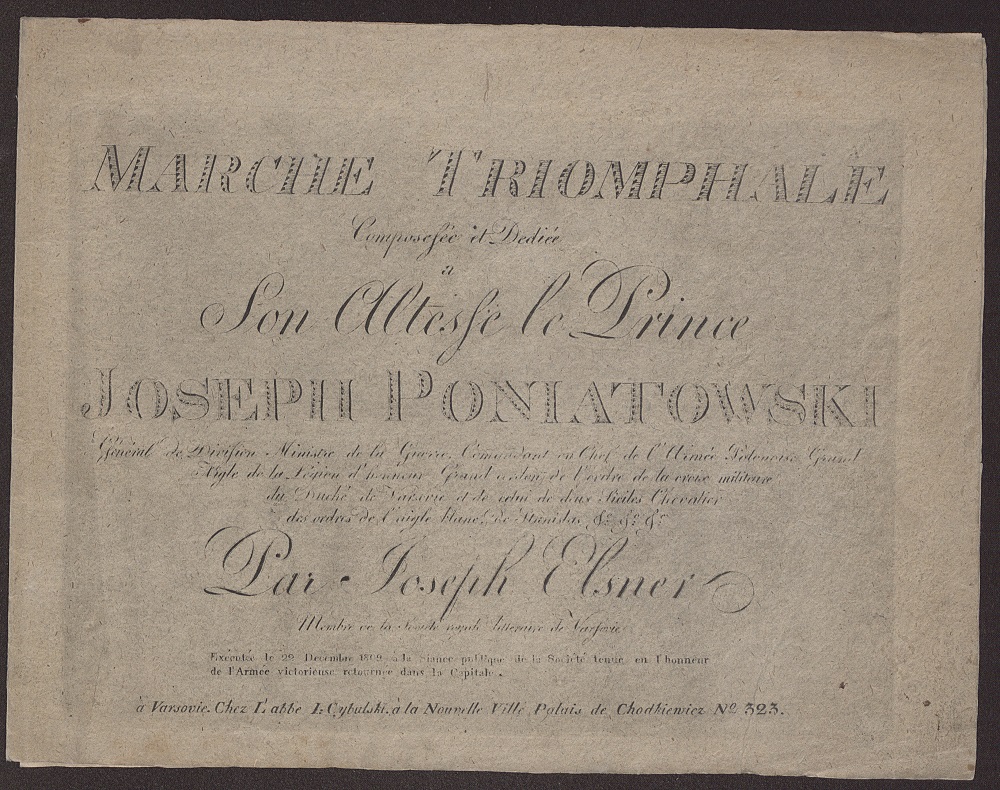 MARCHE TRIOMPHALE
Composeſée et Dediée
a
Son Alteſse le Prince
JOSEPH PONIATOWSKI
Général de Division Ministre de la Guerre, Comandant en Chef de l'Armée Polonoise Grand
Aigle de la Légion d'honneur Grand cordon de l'ordre de la croix militaire
du Duché de Varsovie et de celui de deux Siciles Chevalier
des ordres de l'aigle blanc, de Stanislas &c &c &c
Par Joseph Elsner
Membre de la Société royale litteraire de Varsovie
Exécutée le 29 Decembre 1809 à la séance publique de la Societé tenue en l'honneur
de l'Armée victorieuse retournée dans la Capitale.
à Varsovie. Chez L'abbe I. Cybulski. à la Nouvelle Ville Palais de Chodkiewicz No 323.